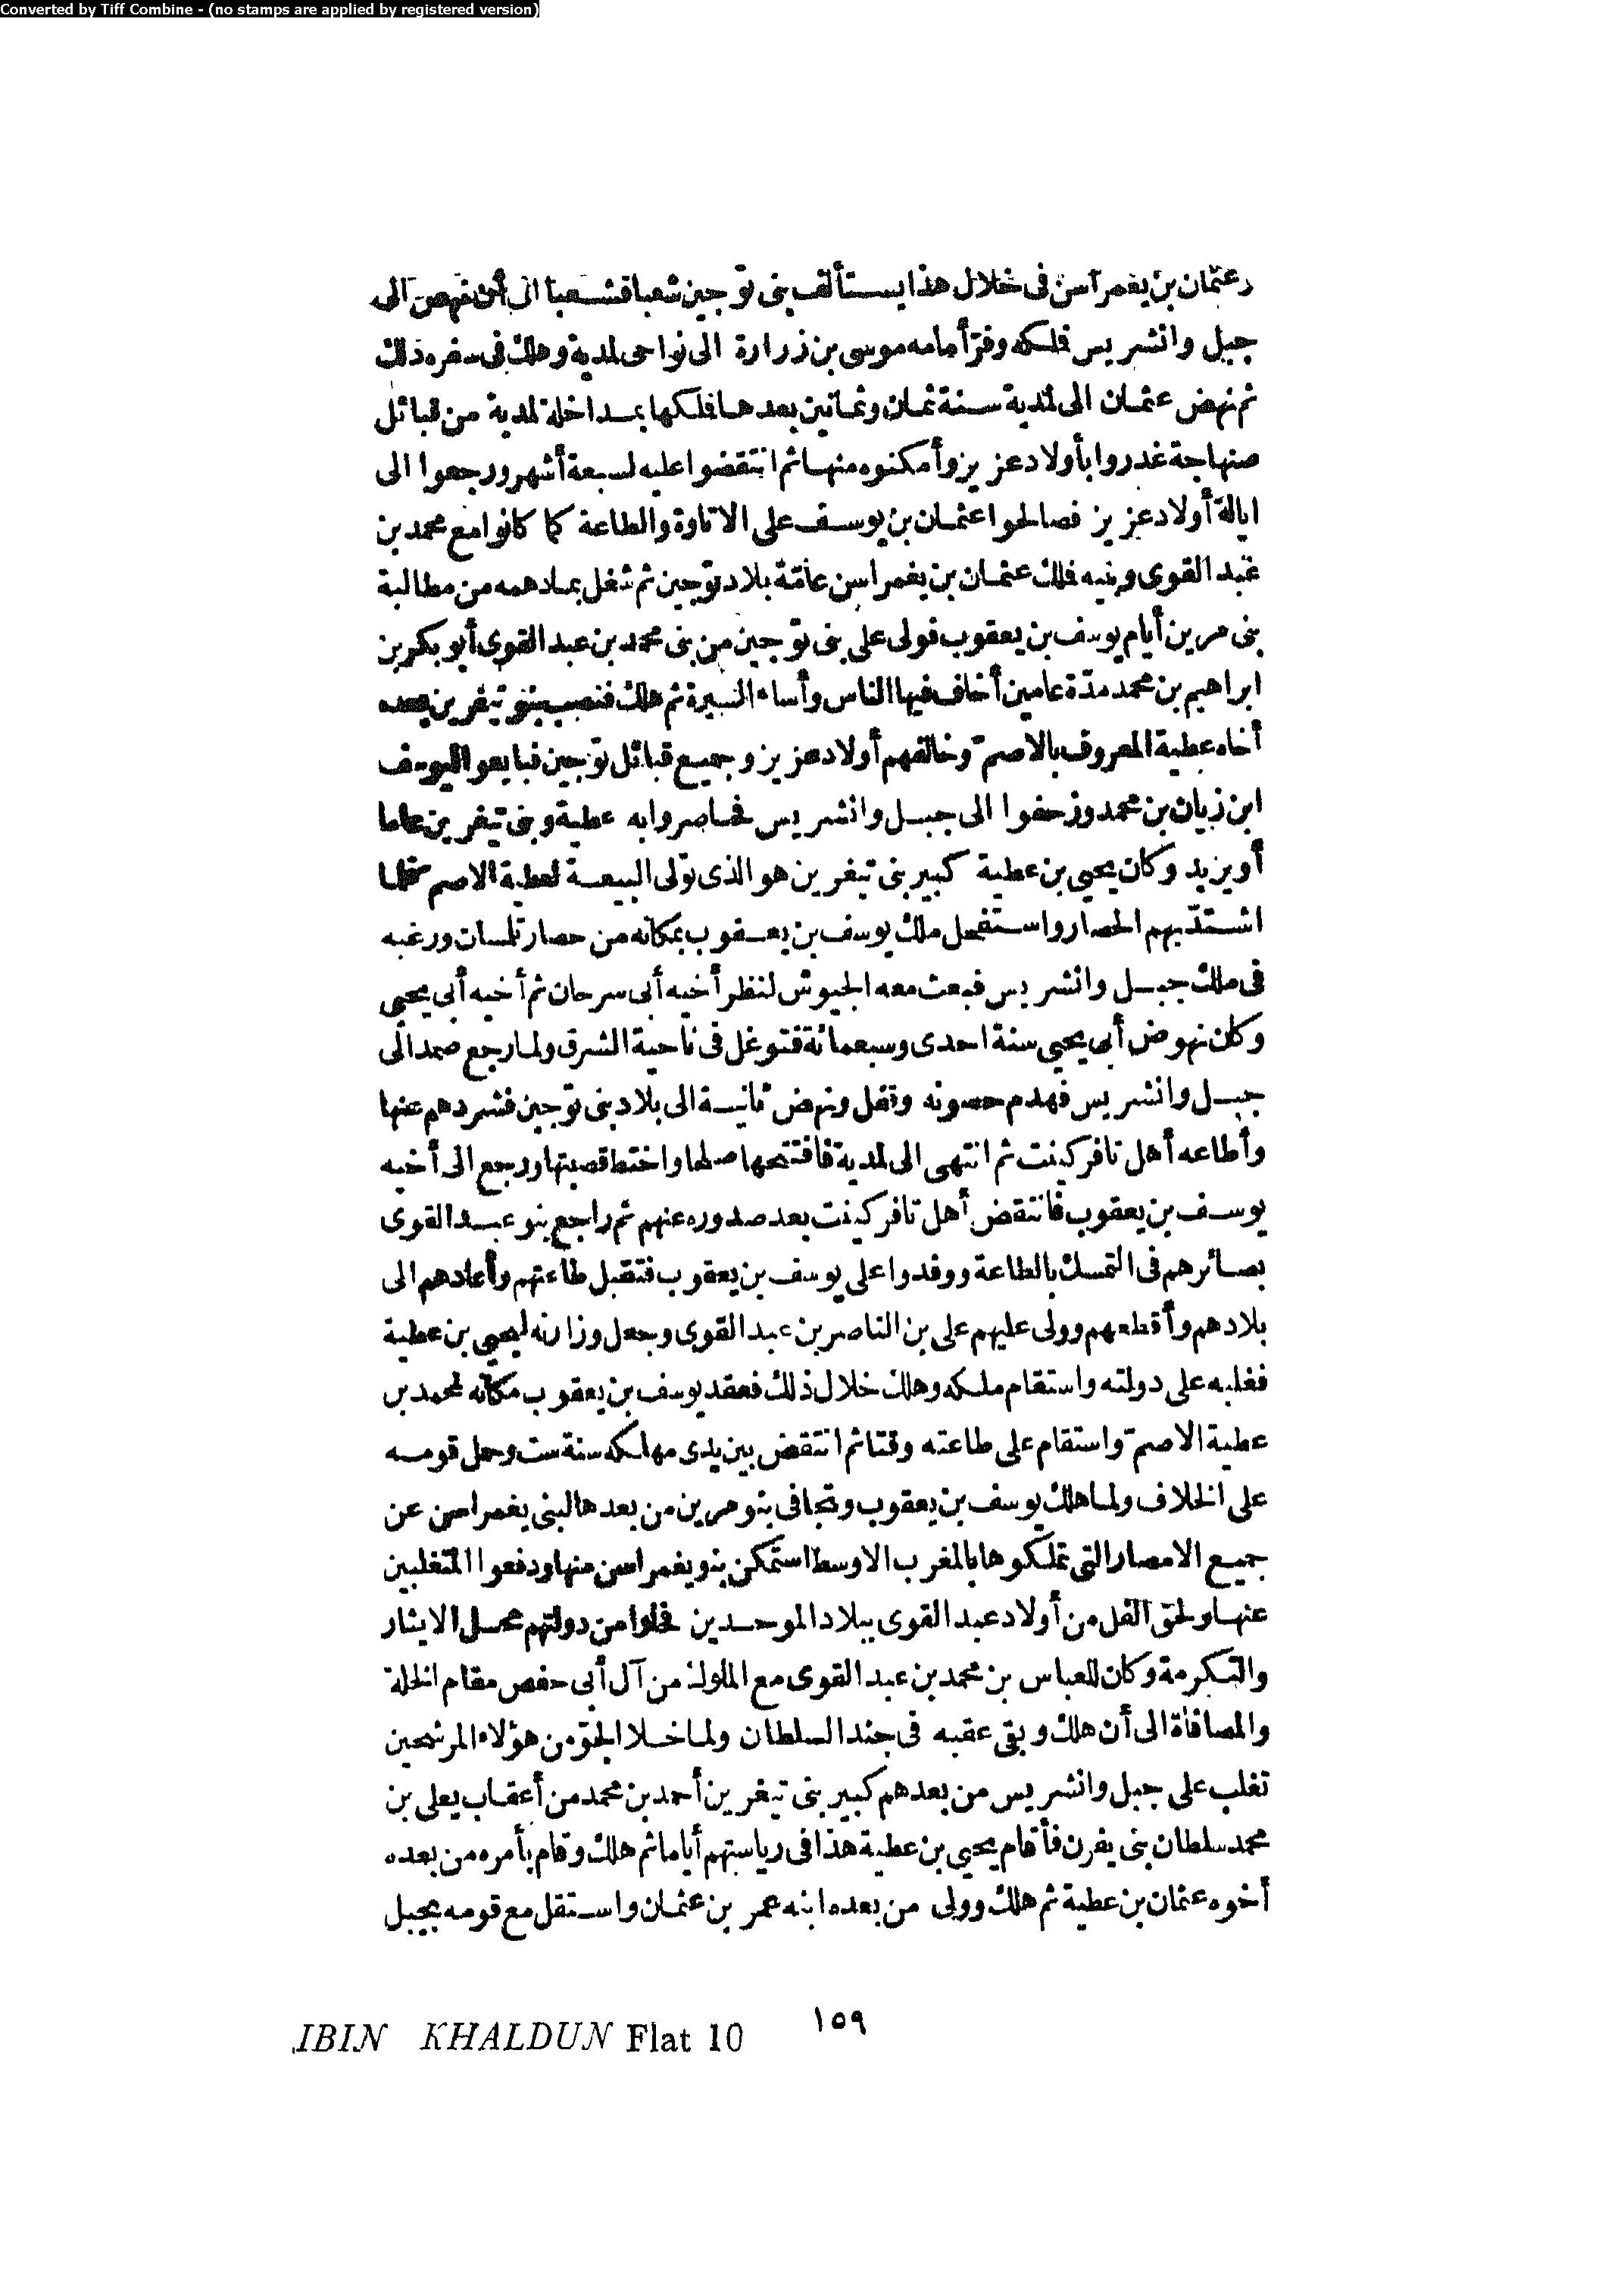 Converted by Tiff Combine - (no stamps are applied by registered version)
وعثمان بن يغمراسن فى خلال هذا يستألف بنى توّجين شعبا فشعبا الى أن نهض الى
جبل وانشريس فملكه وفرّ أمامه موسى بن زرارة الى نواحى لمدية وهلك فى سفره ذلك
ثم نهض عثمان الى لمدية سنة ثمان وثمانين بعدها فملكها بمداخلة لمدية من قبائل
صنهاجة غدروا بأولاد عزيز وأمكنوه منها ثم انتقضوا عليه لسبعة أشهر ورجعوا الى
ايالة أولاد عزيز فصالحوا عثمان بن يوسف على الاتاوة والطاعة كما كانوا مع محمد بن
عبد القوى وبنيه فملك عثمان بن يغمراسن عامّة بلاد توّجين ثم شغل بما دهمه من مطالبة
بنى مرين أيام يوسف بن يعقوب فولى على بنى توّجين من بنى محمد بن عبد القوى أبو بكر بن
ابراهيم بن محمد مدّة عامين أخاف فيها الناس وأساء السيرة ثم هلك فنصب بنو تيغرين بعده
أخاه عطية المعروف بالاصمّ وخالفهم أولاد عزيز وجميع قبائل توّجين فبايعوا ليوسف
ابن زيان بن محمد وزحفوا الى جبل وانشريس فحاصروا به عطية وبنى تيغرين عاما
أو يزيد وكان يحيى بن عطية كبير بنى تيغرين هو الذى تولى البيعة لعطية الاصم فلما
اشتدّ بهم الحصار واستفحل ملك يوسف بن يعقوب بمكانه من حصار تلمسان ورغبه
فى ملك جبل وانشريس فبعث معه الجيوش لنظر أخيه أبى سرحان ثم أخيه أبى يحيى
وكان نهوض أبى يحيى سنة احدى وسبعمائة فتوغل فى ناحية الشرق ولما رجع صمد الى
جبل وانشريس فهدم حصونه وقفل ونهض ثانية الى بلاد بنى توّجين فشردهم عنها
وأطاعه أهل تافركينت ثم انتهى الى لمدية فافتتحها صلحا واختط قصبتها ورجع الى أخيه
يوسف بن يعقوب فانتقض أهل تافركينت بعد صدوره عنهم ثم راجع بنو عبد القوى
بصائرهم فى التمسك بالطاعة ووفدوا على يوسف بن يعقوب فتقبل طاعتهم وأعادهم الى
بلادهم وأقطعهم وولى عليهم على بن الناصر بن عبد القوى وجعل وزارته ليحيى بن عطية
فغلبه على دولته واستقام ملكه وهلك خلال ذلك فعقد يوسف بن يعقوب مكانه لمحمد بن
عطية الاصمّ واستقام على طاعته وقتا ثم انتقض بين يدى مهلكه سنة ست وحمل قومه
على الخلاف ولما هلك يوسف بن يعقوب وتجافى بنو مرين من بعدها لبنى يغمراسن عن
جميع الامصار التى تملكوها بالمغرب الاوسط استمكن بنو يغمراسن منها ودفعوا المتغلبين
عنها ولحق الفل من أولاد عبد القوى ببلاد الموحدين فحلوا من دولتهم محل الايثار
والتكرمة وكان للعباس بن محمد بن عبد القوى مع الملوك من آل أبى حفص مقام الخلة
والمصافاة الى أن هلك وبقى عقبه فى جند السلطان ولما خلا الجوّ من هؤلاء المرشحين
تغلب على جبل وانشريس من بعدهم كبير بنى تيغرين أحمد بن محمد من أعقاب يعلى بن
محمد سلطان بنى يفرن فأقام يحيى بن عطية هذا فى رياستهم أياما ثم هلك وقام بأمره من بعده
أخوه عثمان بن عطية ثم هلك وولى من بعده ابنه عمر بن عثمان واستقل مع قومه بجبل
١٥٩
IBIN KHALDUN Flat 10